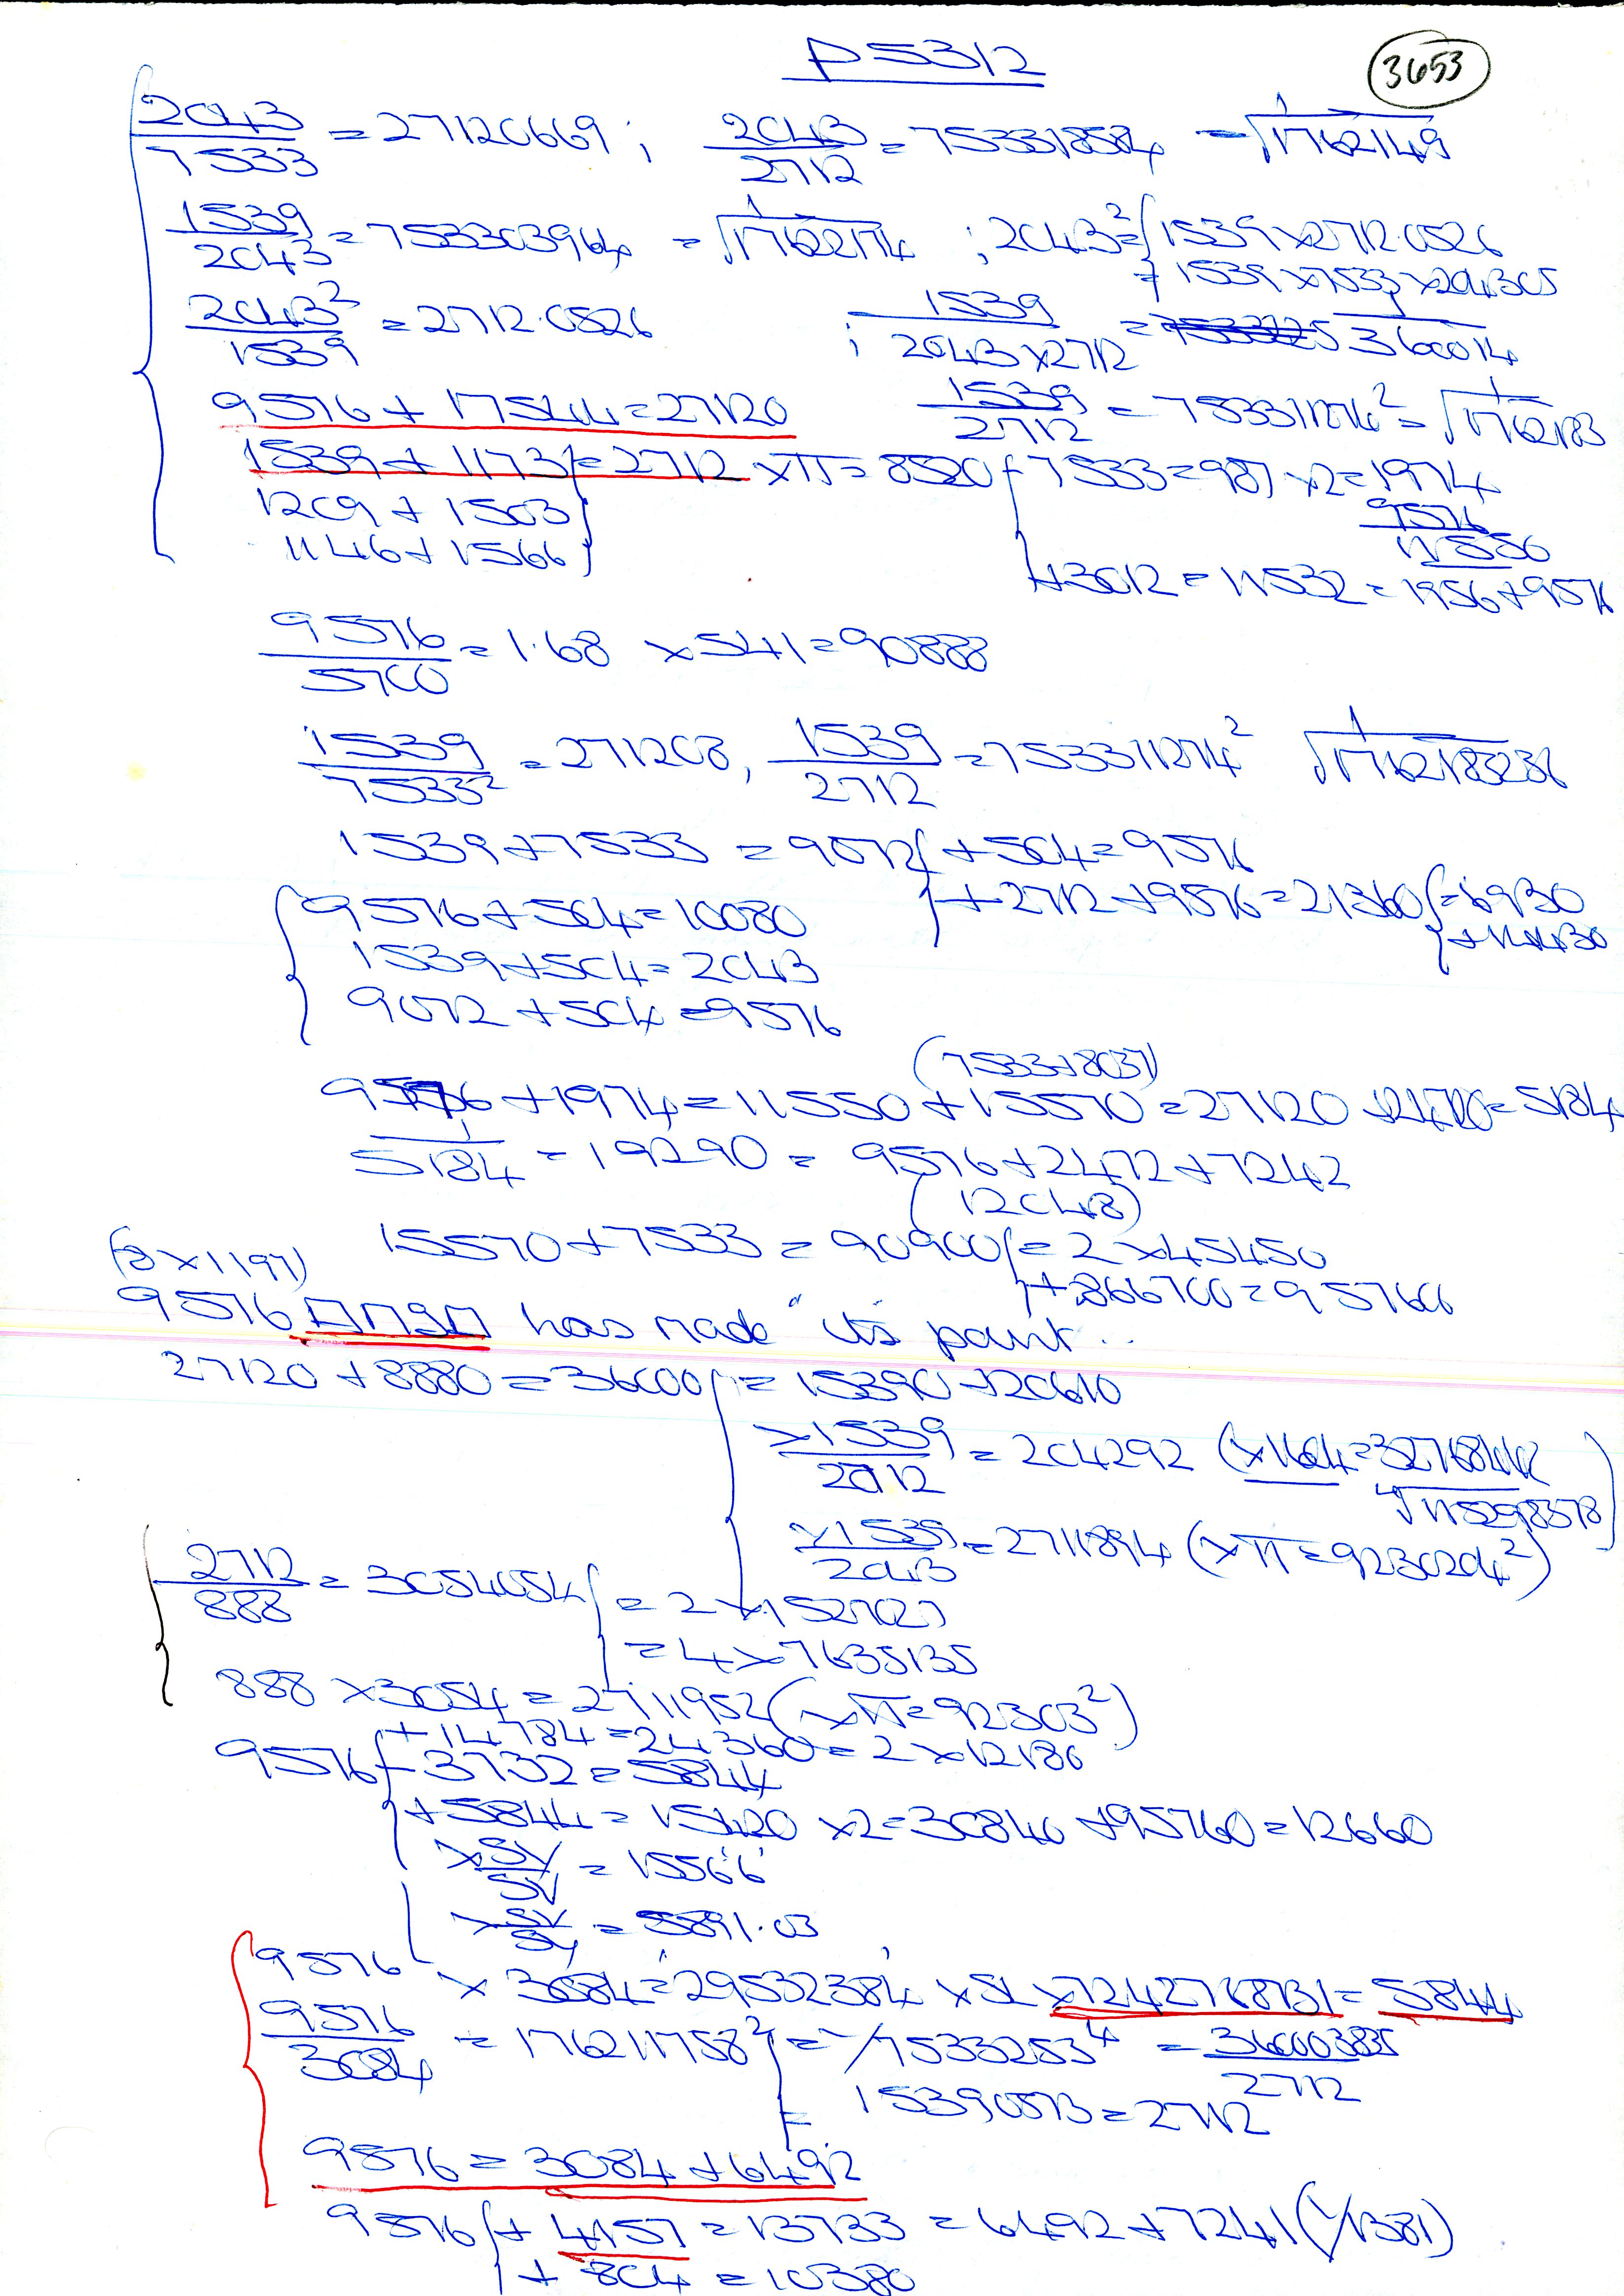 P5312
3653
2043/7533 = 27120669 ; 2043/2712 = 753318584 = √1762149
1539/2043 = 753303964 = √1762174 ; 2043² = { 1539 × 2712.0526
= 1539 × 7533 × 204305
2043²/1539 = 2712.0526 ; 1539/2043×2712 = 3600014
9576 + 17544 = 27120 1539/2712 = 753311274² = √1762183
1539 + 1173 } = 2712 × π = 8520 { - 7533 = 987 × 2 = 1974
1209 + 1503 9576
1146 + 1566 11550
+ 3012 = 11532 = 1956 + 9576
9576/5700 = 1.68 × 541 = 90888
1539/7533² = 271208, 1539/2712 = 753311274² √1762183286
1539 + 7533 = 9072 { + 504 = 9576
9576 + 504 = 10080 + 2712 + 9576 = 21360 { = 6930
1539 + 504 = 2043 + 14430
9072 + 504 = 9576
(7533+8037)
9576 + 1974 = 11550 + 15570 = 27120 = 5184
1/5184 = 19290 = 9576 + 2472 + 7242
(12048)
15570 + 7533 = 90900 { = 2 × 45450
(8 × 1197) + 866700 = 957600
9576 has made "its point...
27120 + 8880 = 36000 { = 15390 + 20610
× 1539/2712 = 204292 (×1604 =
√115298578)
× 1539/2043 = 2711894 (× π = 9230204²)
2712/888 = 3054054 { = 2 × 1527027
= 4 × 7635135
888 × 3054 = 2711952 (× π = 92303²)
+ 14784 = 24360 = 2 × 12180
9576 { - 3732 = 5844
+ 5844 = 15420 × 2 = 30840 + 95760 = 12660
× SY/SV = 15566
× SV/SY = 5891.03
9576 × 3084 = 29532384 × SL × 7242768131 = 5844
9576/3084 = 176211758² { = 7533253⁴ = 36003835/2712
= 15390513 = 2712
9576 = 3084 + 6492
9576 { + 4157 = 13733 = 6492 + 7241 (1/1381)
+ 804 = 10380